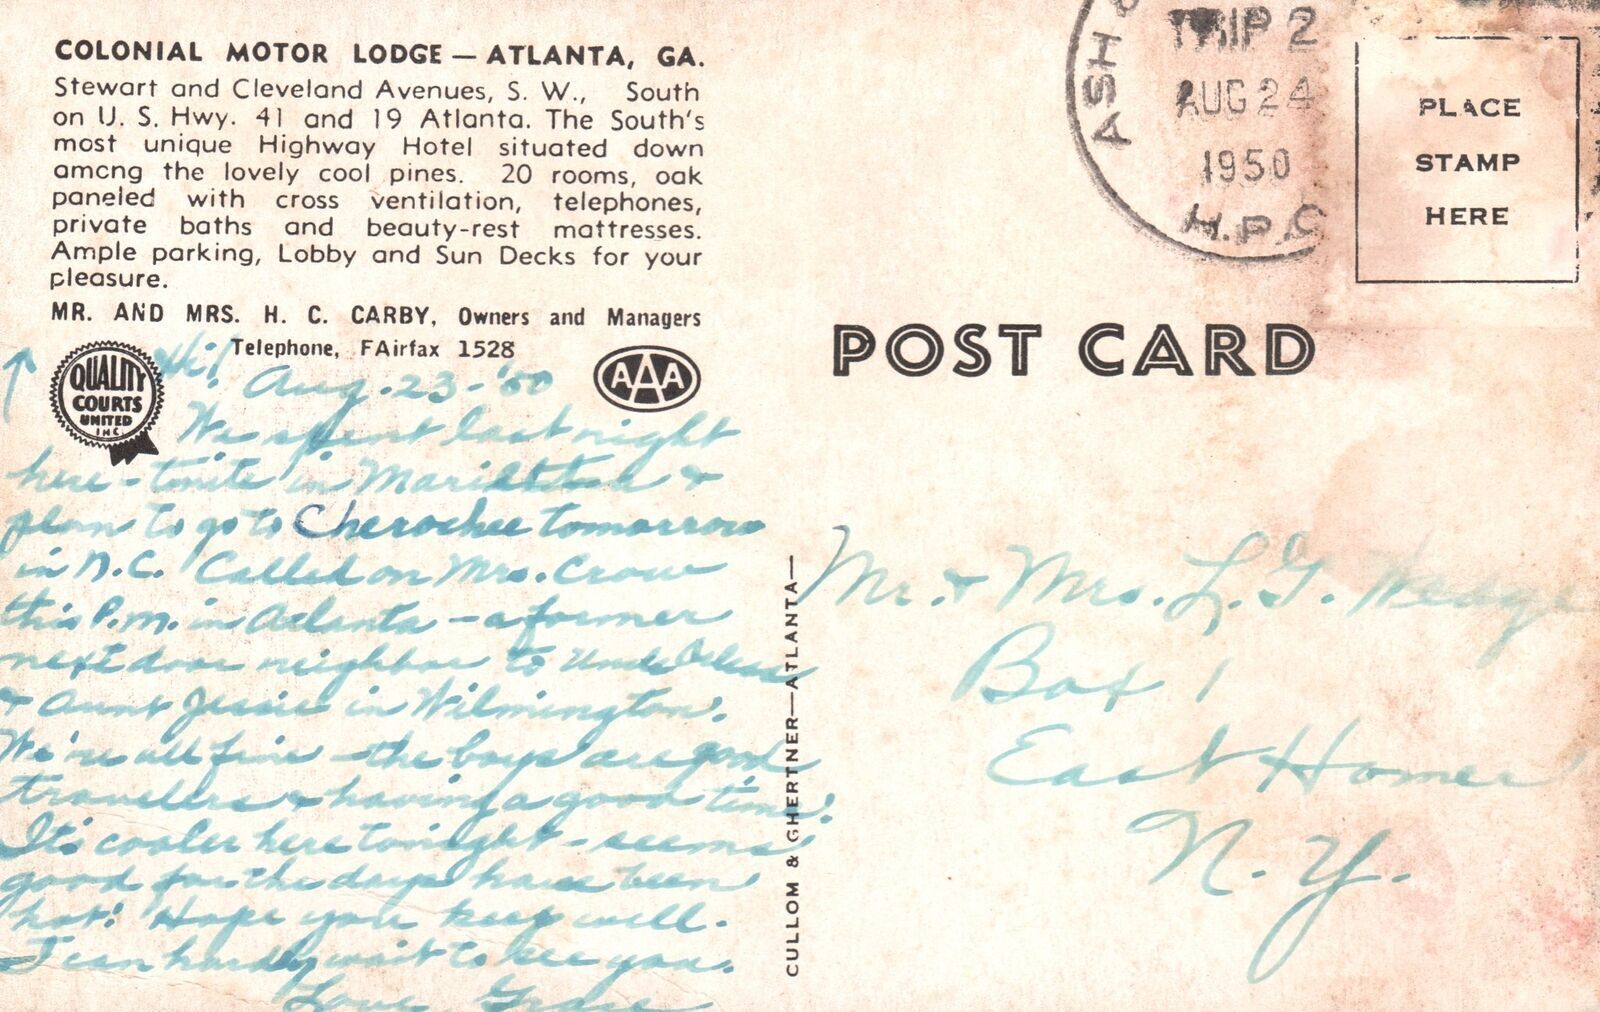 COLONIAL MOTOR LODGE — ATLANTA, GA.
Stewart and Cleveland Avenues, S. W., South
on U. S. Hwy. 41 and 19 Atlanta. The South's
most unique Highway Hotel situated down
among the lovely cool pines. 20 rooms, oak
paneled with cross ventilation, telephones,
private baths and beauty-rest mattresses.
Ample parking, Lobby and Sun Decks for your
pleasure.
MR. AND MRS. H. C. CARBY, Owners and Managers
Telephone, FAirfax 1528
QUALITY
COURTS
UNITED
INC.
AAA
Hi!
Aug. 23 - '50
We spent last night
here - tonite in Marietta &
plan to go to Cherochee tomorrow
in N.C. Called on Mrs. Crow
this P.m. in Atlanta - a former
next door neighbor to Uncle
& Aunt Jessie in Wilmington.
We're all fine - the boys are good
travelers & having a good time!
It's cooler here tonight - seems
good for the days have been
hot! Hope you keep well.
I can hardly wait to see you.
Love Grace
CULLOM & GHERTNER—ATLANTA—
ASH &
TRIP 2
AUG 24
1950
H.P.O
PLACE
STAMP
HERE
POST CARD
Mr. & Mrs. L. G.
Box 1
East Homer
N. Y.